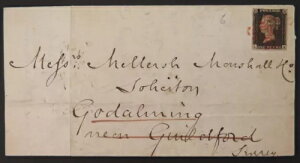 6
Messrs. Mellersh Marshall & Co
Solicitors
Godalming
near Guildford
Surrey